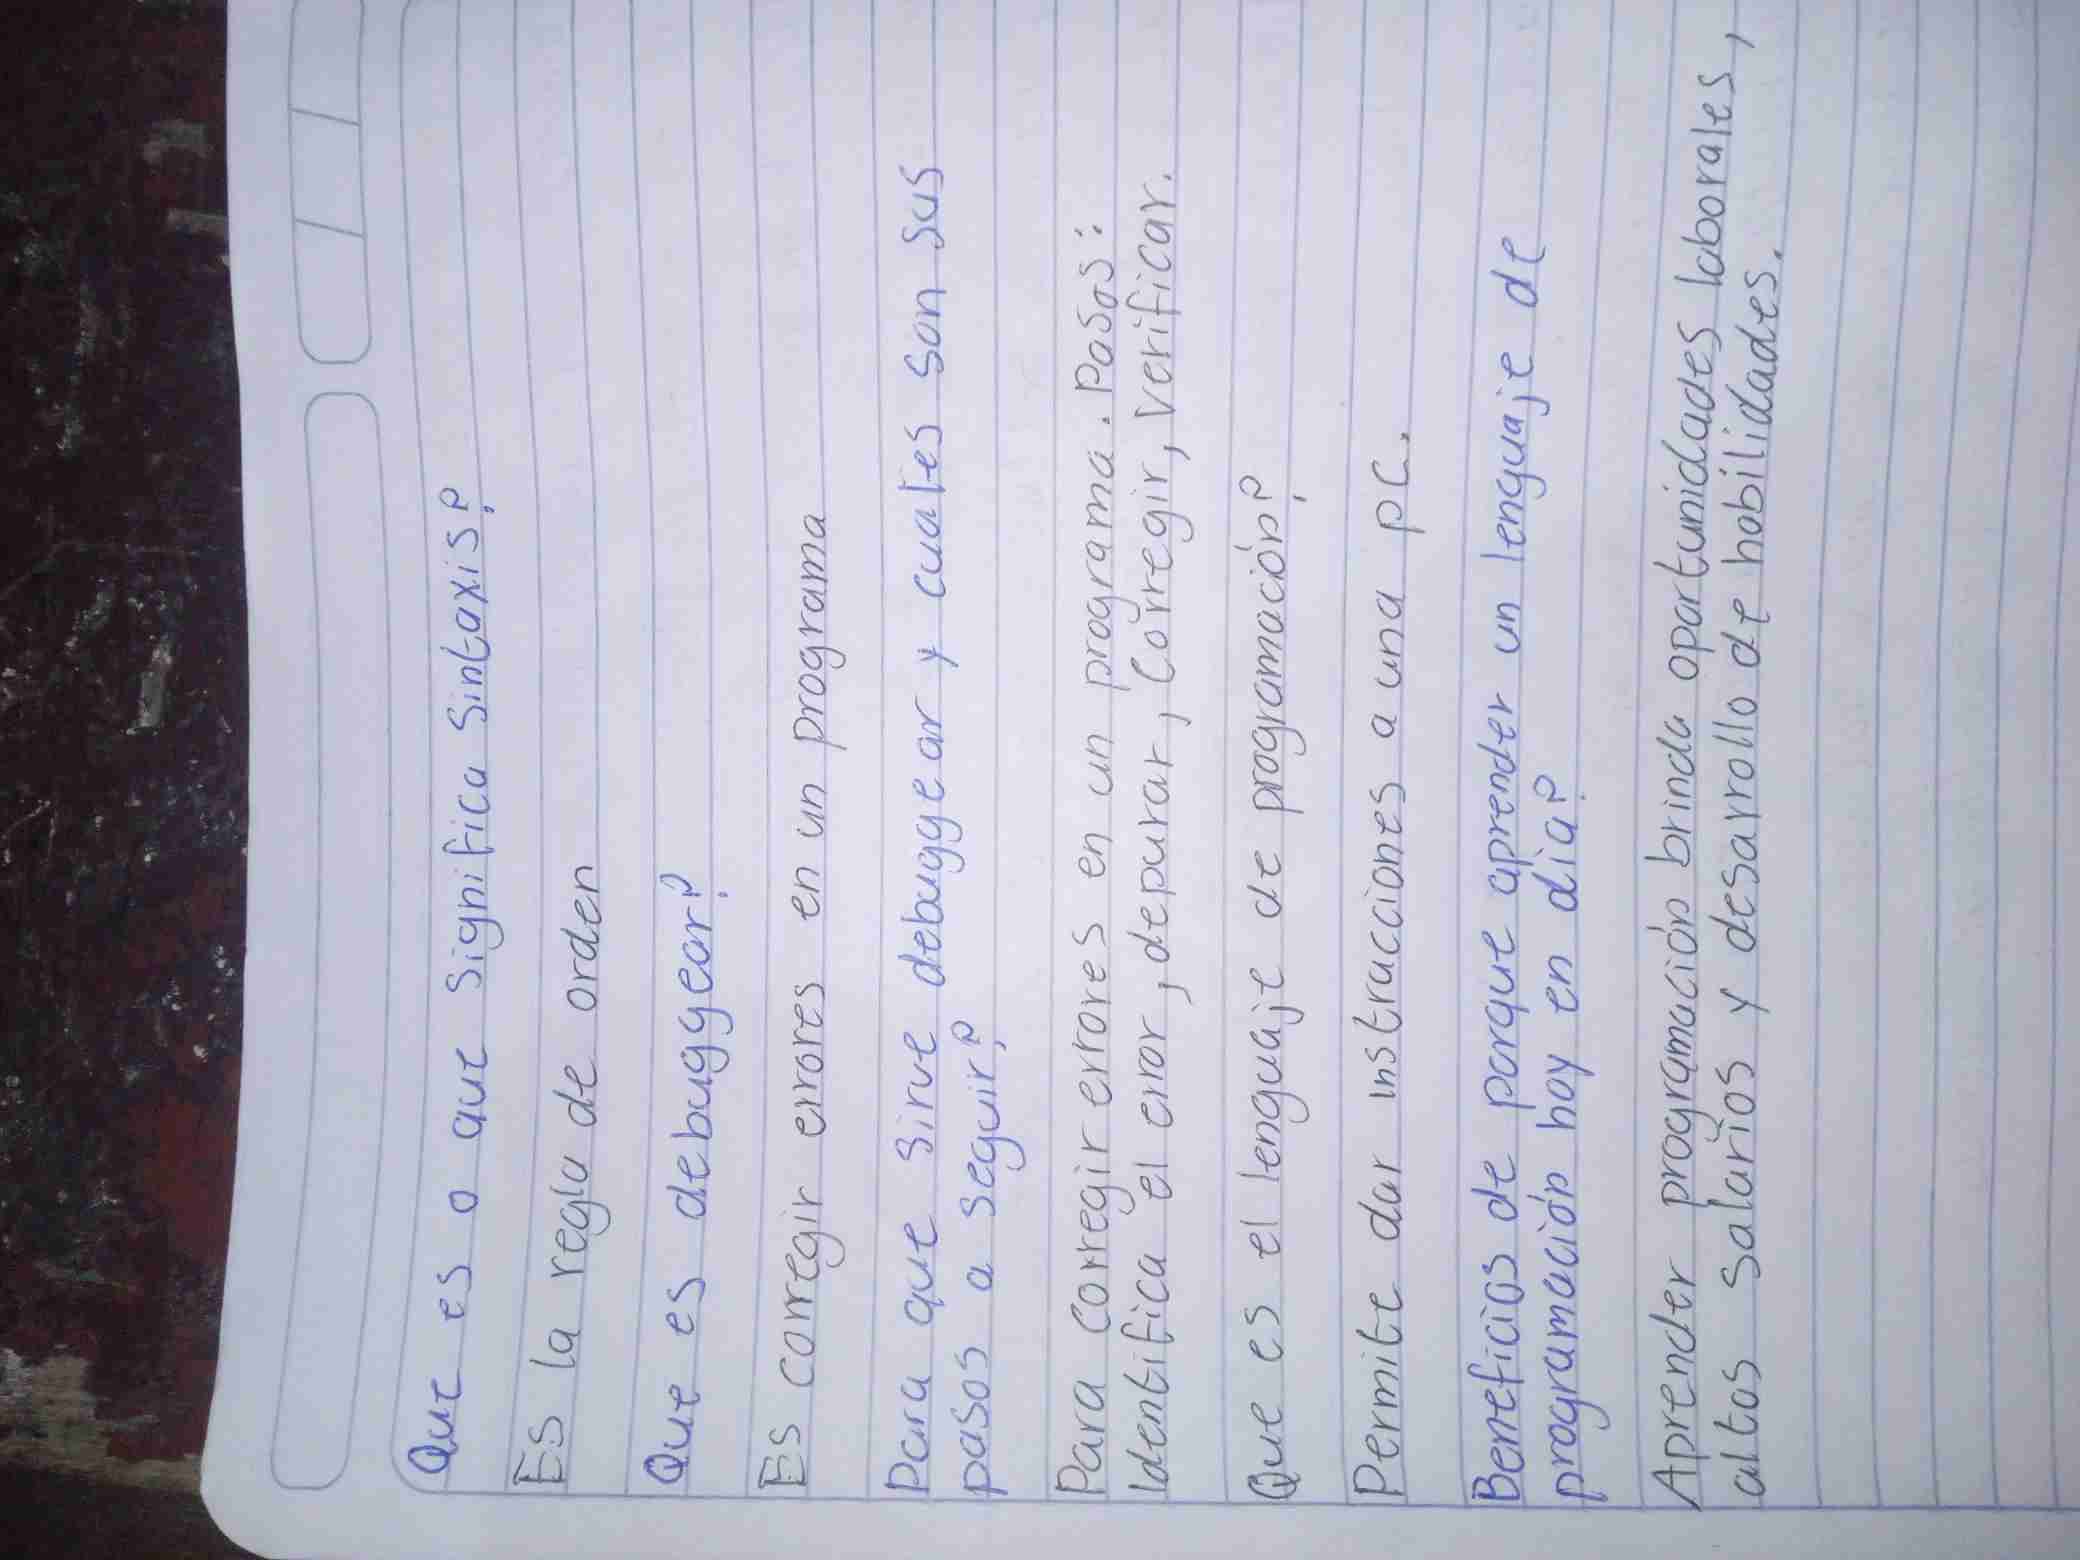 Que es o que significa sintaxis?
Es la regla de orden
Que es debuggear?
Es corregir errores en un programa
Para que sirve debuggear y cuales son sus
pasos a seguir?
Para corregir errores en un programa. Pasos:
Identifica el error, depurar, corregir, verificar.
Que es el lenguaje de programación?
Permite dar instrucciones a una pc.
Beneficios de porque aprender un lenguaje de
programación hoy en dia?
Aprender programación brinda oportunidades laborales,
altos salarios y desarrollo de habilidades.